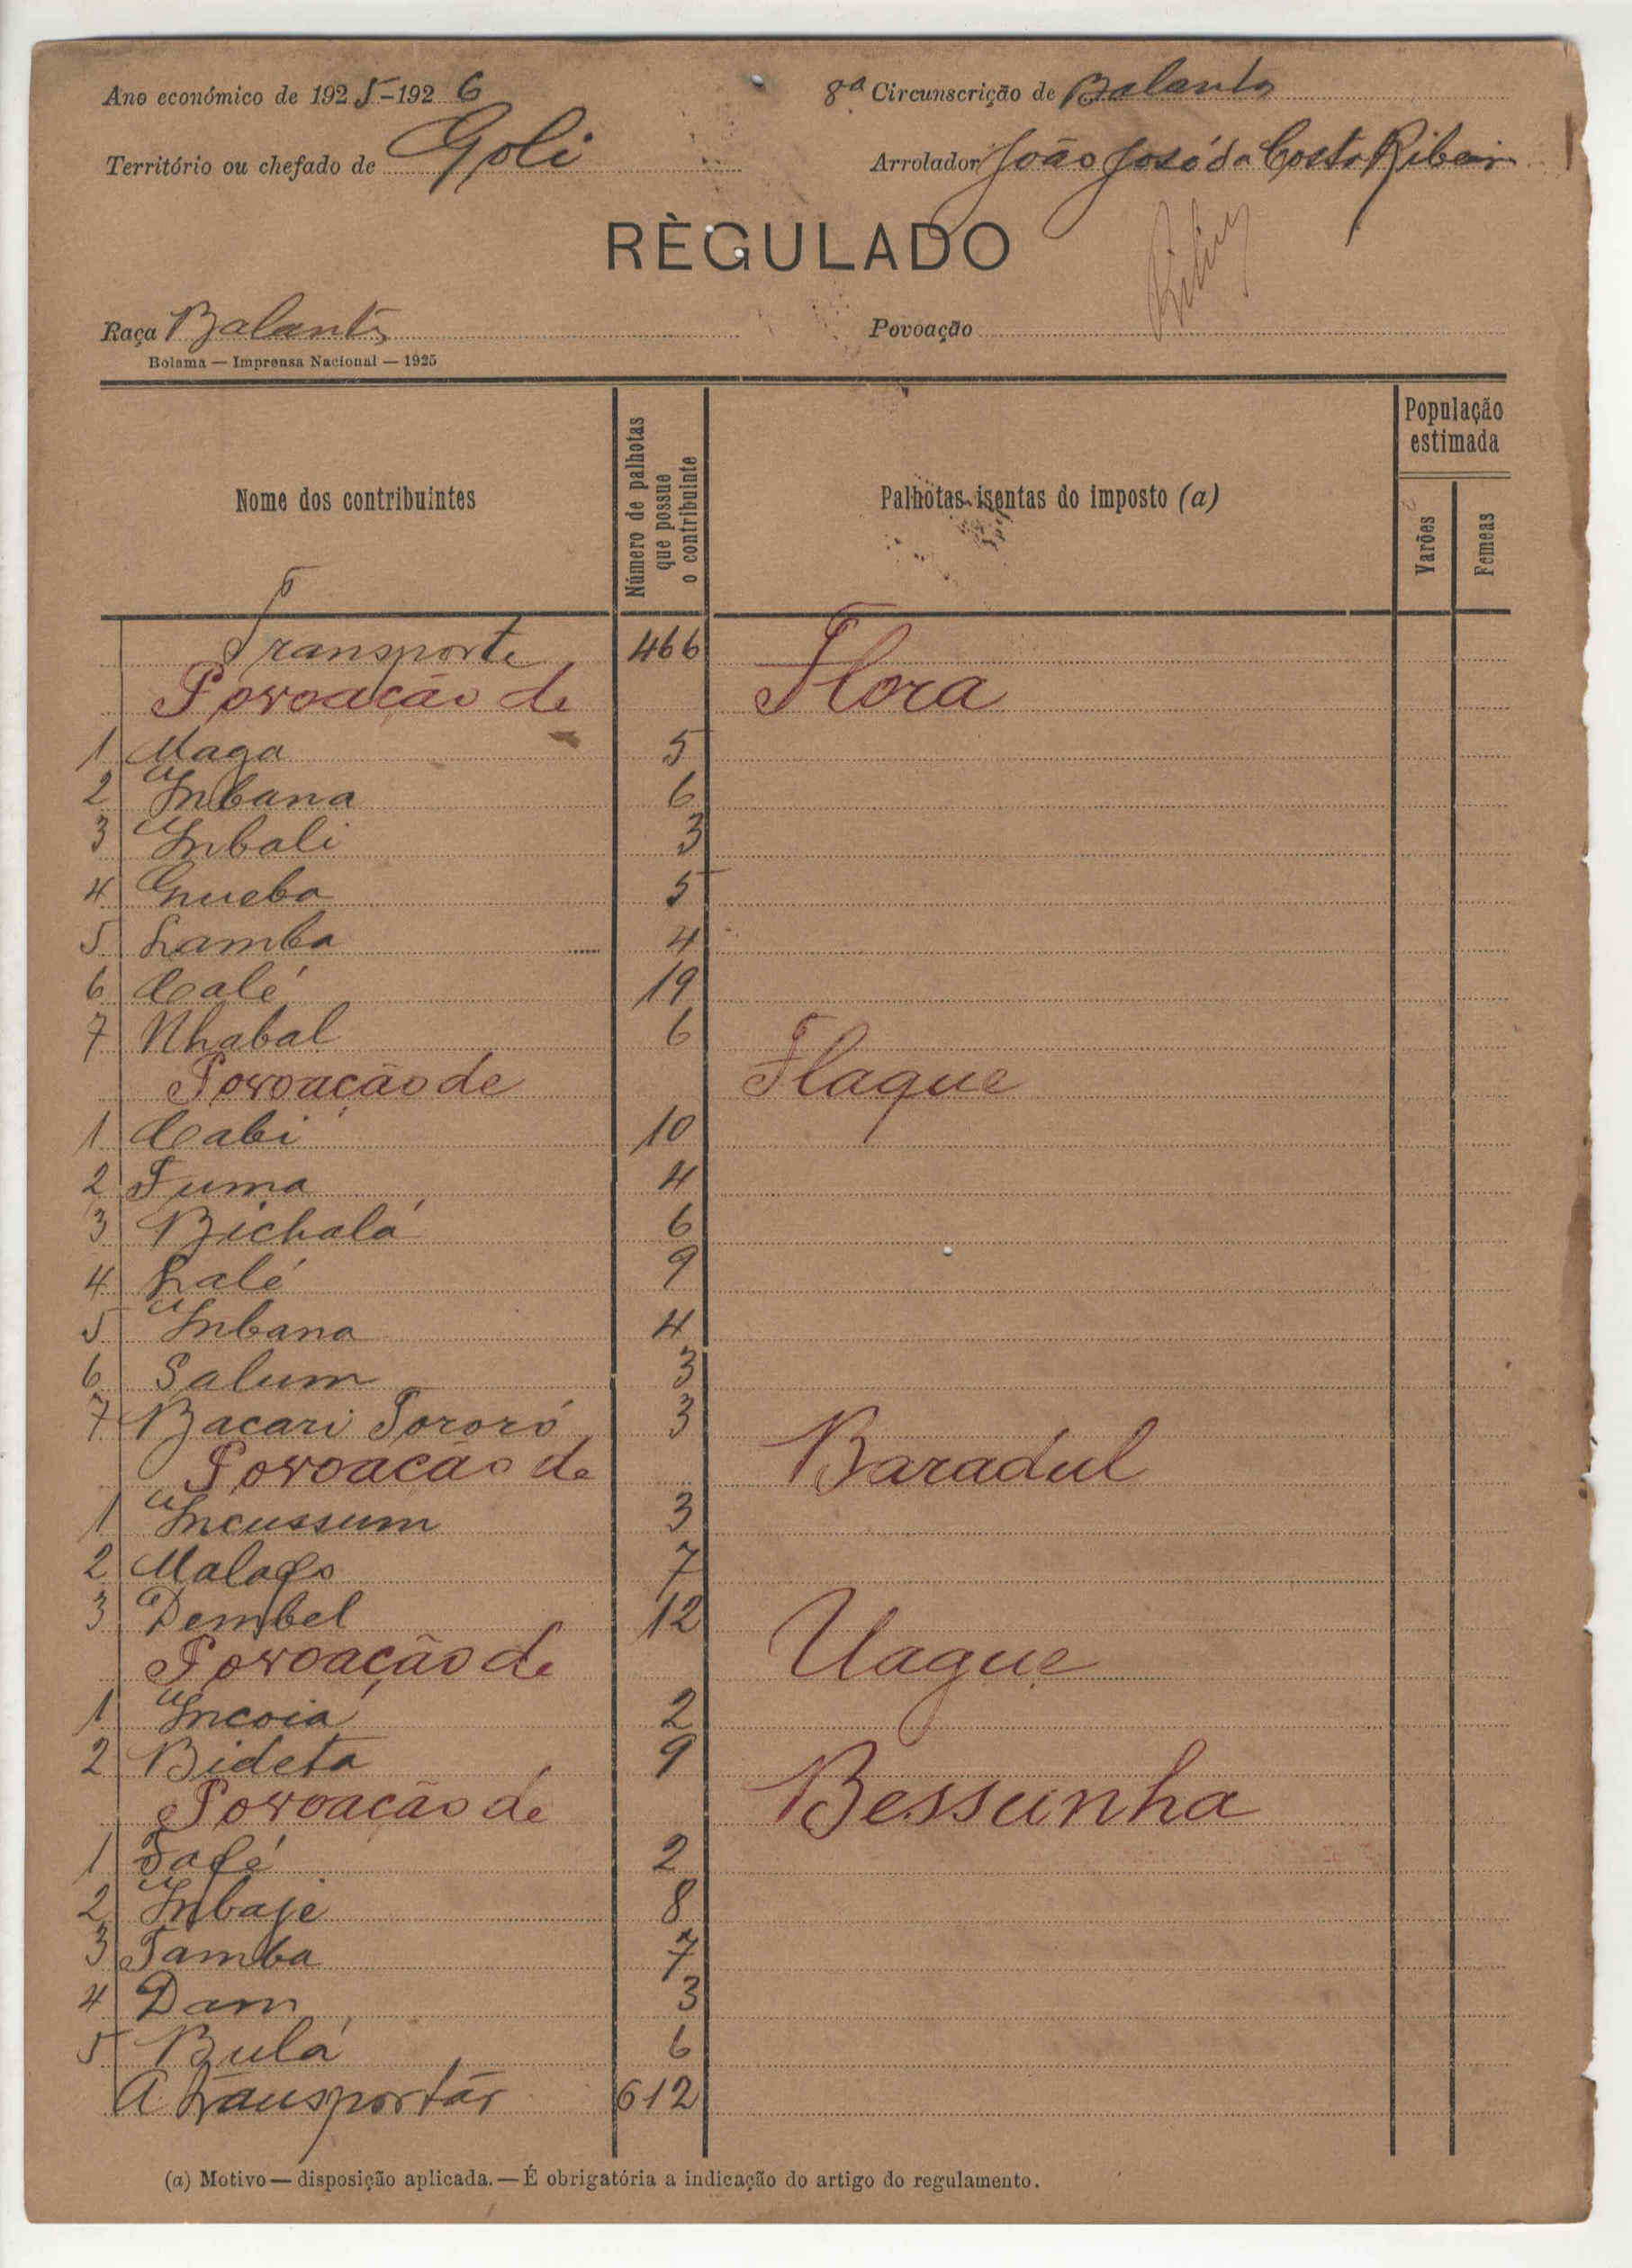 Ano económico de 1925-1926
8ª Circunscrição de Balanta
Território ou chefado de Goli
Arrolador João José da Costa Ribeiro
RÈGULADO
Raça Balanta
Povoação
Bolama — Imprensa Nacional — 1925
Nome dos contribuintes
Número de palhotas que possue o contribuinte
Palhotas isentas do imposto (a)
População estimada
Varões
Femeas
Transporte 466
Povoação de Flora
1 Maga 5
2 Inbana 6
3 Inbali 3
4 Gnueba 5
5 Lamba 4
6 Calé 19
7 Nhabal 6
Povoação de Flaque
1 Cabi 10
2 Tuma 4
3 Bichalá 6
4 Lalé 9
5 Inbana 4
6 Salum 3
7 Bacari Tororó 3
Povoação de Baradul
1 Incussum 3
2 Malafo 7
3 Dembel 12
Povoação de Uaque
1 Incoia 2
2 Bideta 9
Povoação de Bessunha
1 Safé 2
2 Inbaje 8
3 Tamba 7
4 Dam 3
5 Bulá 6
A transportar 612
(a) Motivo — disposição aplicada. — É obrigatória a indicação do artigo do regulamento.